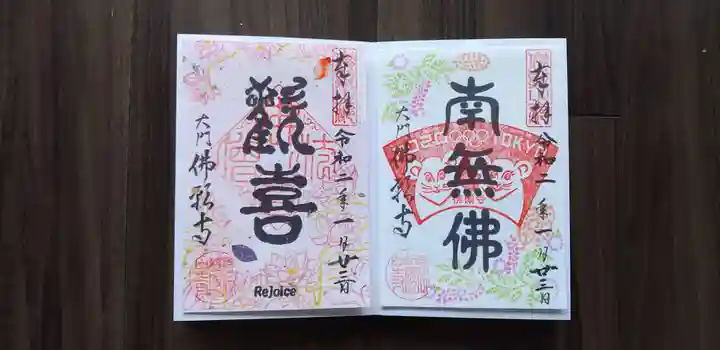 奉拝
令和二年一月廿三日
南無佛
2020 TOKYO
大門 佛願寺
奉拝
令和二年一月廿三日
歡喜
大門 佛願寺
Rejoice